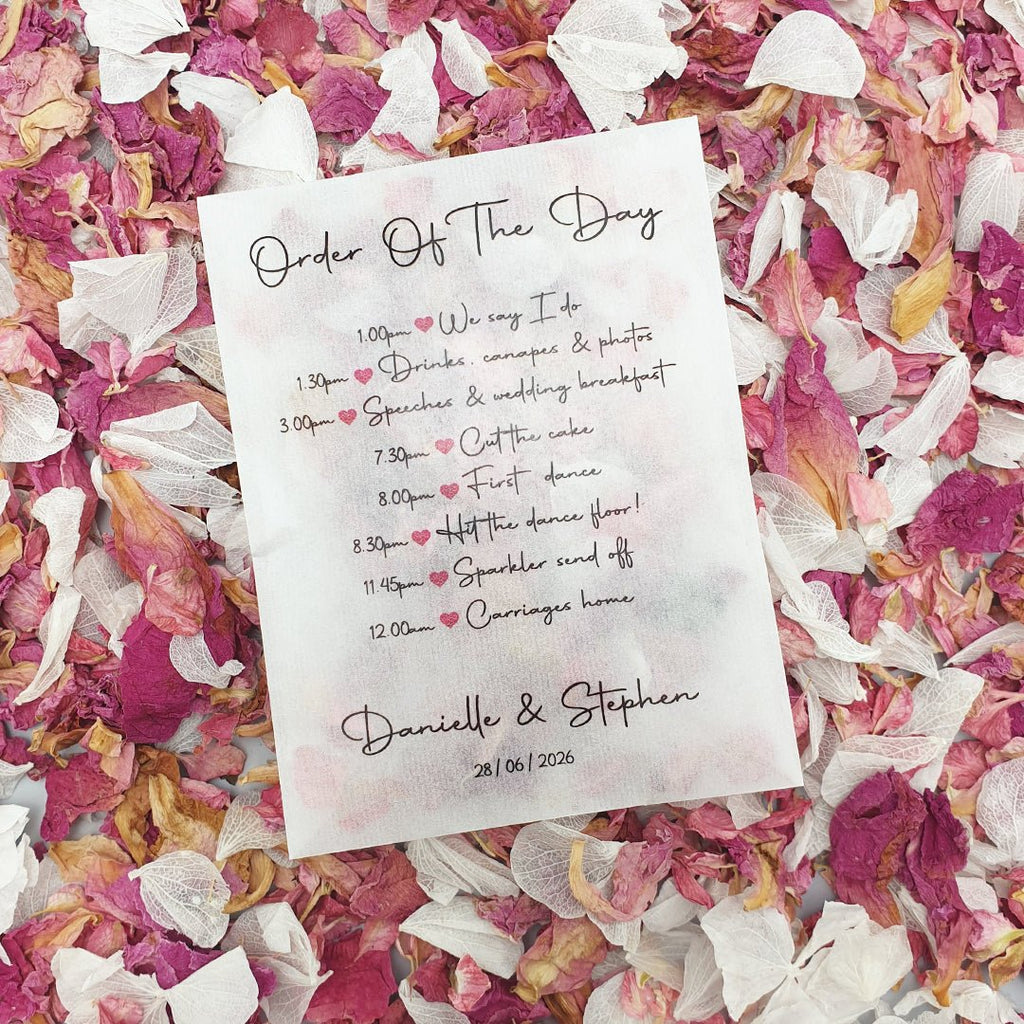 Order Of The Day
1.00pm We say I do
1.30pm Drinks, canapes & photos
3.00pm Speeches & wedding breakfast
7.30pm Cut the cake
8.00pm First dance
8.30pm Hit the dance floor!
11.45pm Sparkler send off
12.00am Carriages home
Danielle & Stephen
28/06/2026